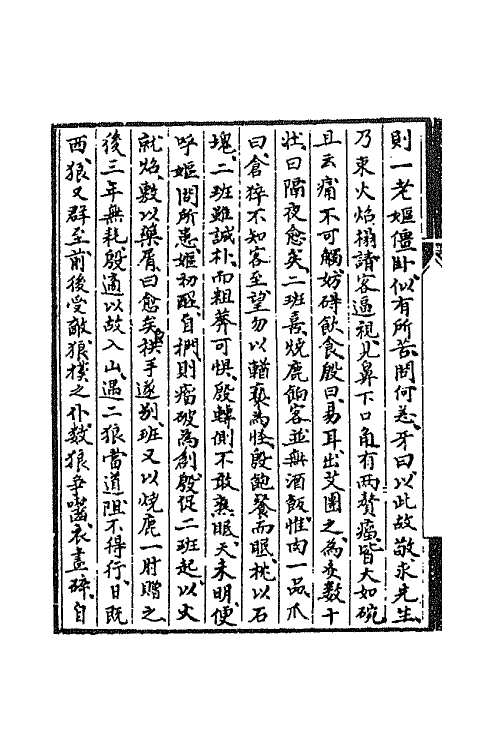 則一老嫗僵卧似有所苦問何恙牙曰以此故敬求先生
乃束火炤榻請客逼視見鼻下口角有兩贅瘤皆大如碗
且云痛不可觸妨碍飲食殷曰易耳出艾團之為灸數十
壯曰隔夜愈矣二班喜燒鹿餉客並無酒飯惟肉一品爪
曰倉猝不知客至望勿以輶褻為怪殷飽餐而眠枕以石
塊二班雖誠朴而粗莽可惧殷轉側不敢熟眠天未明便
呼嫗問所患嫗初醒自捫則瘤破為創殷促二班起以火
就炤敷以藥屑曰愈矣拱手遂別班又以燒鹿一肘贈之
後三年無耗殷適以故入山遇二狼當道阻不得行日既
西狼又群至前後受敵狼撲之仆數狼爭嚙衣盡碎自